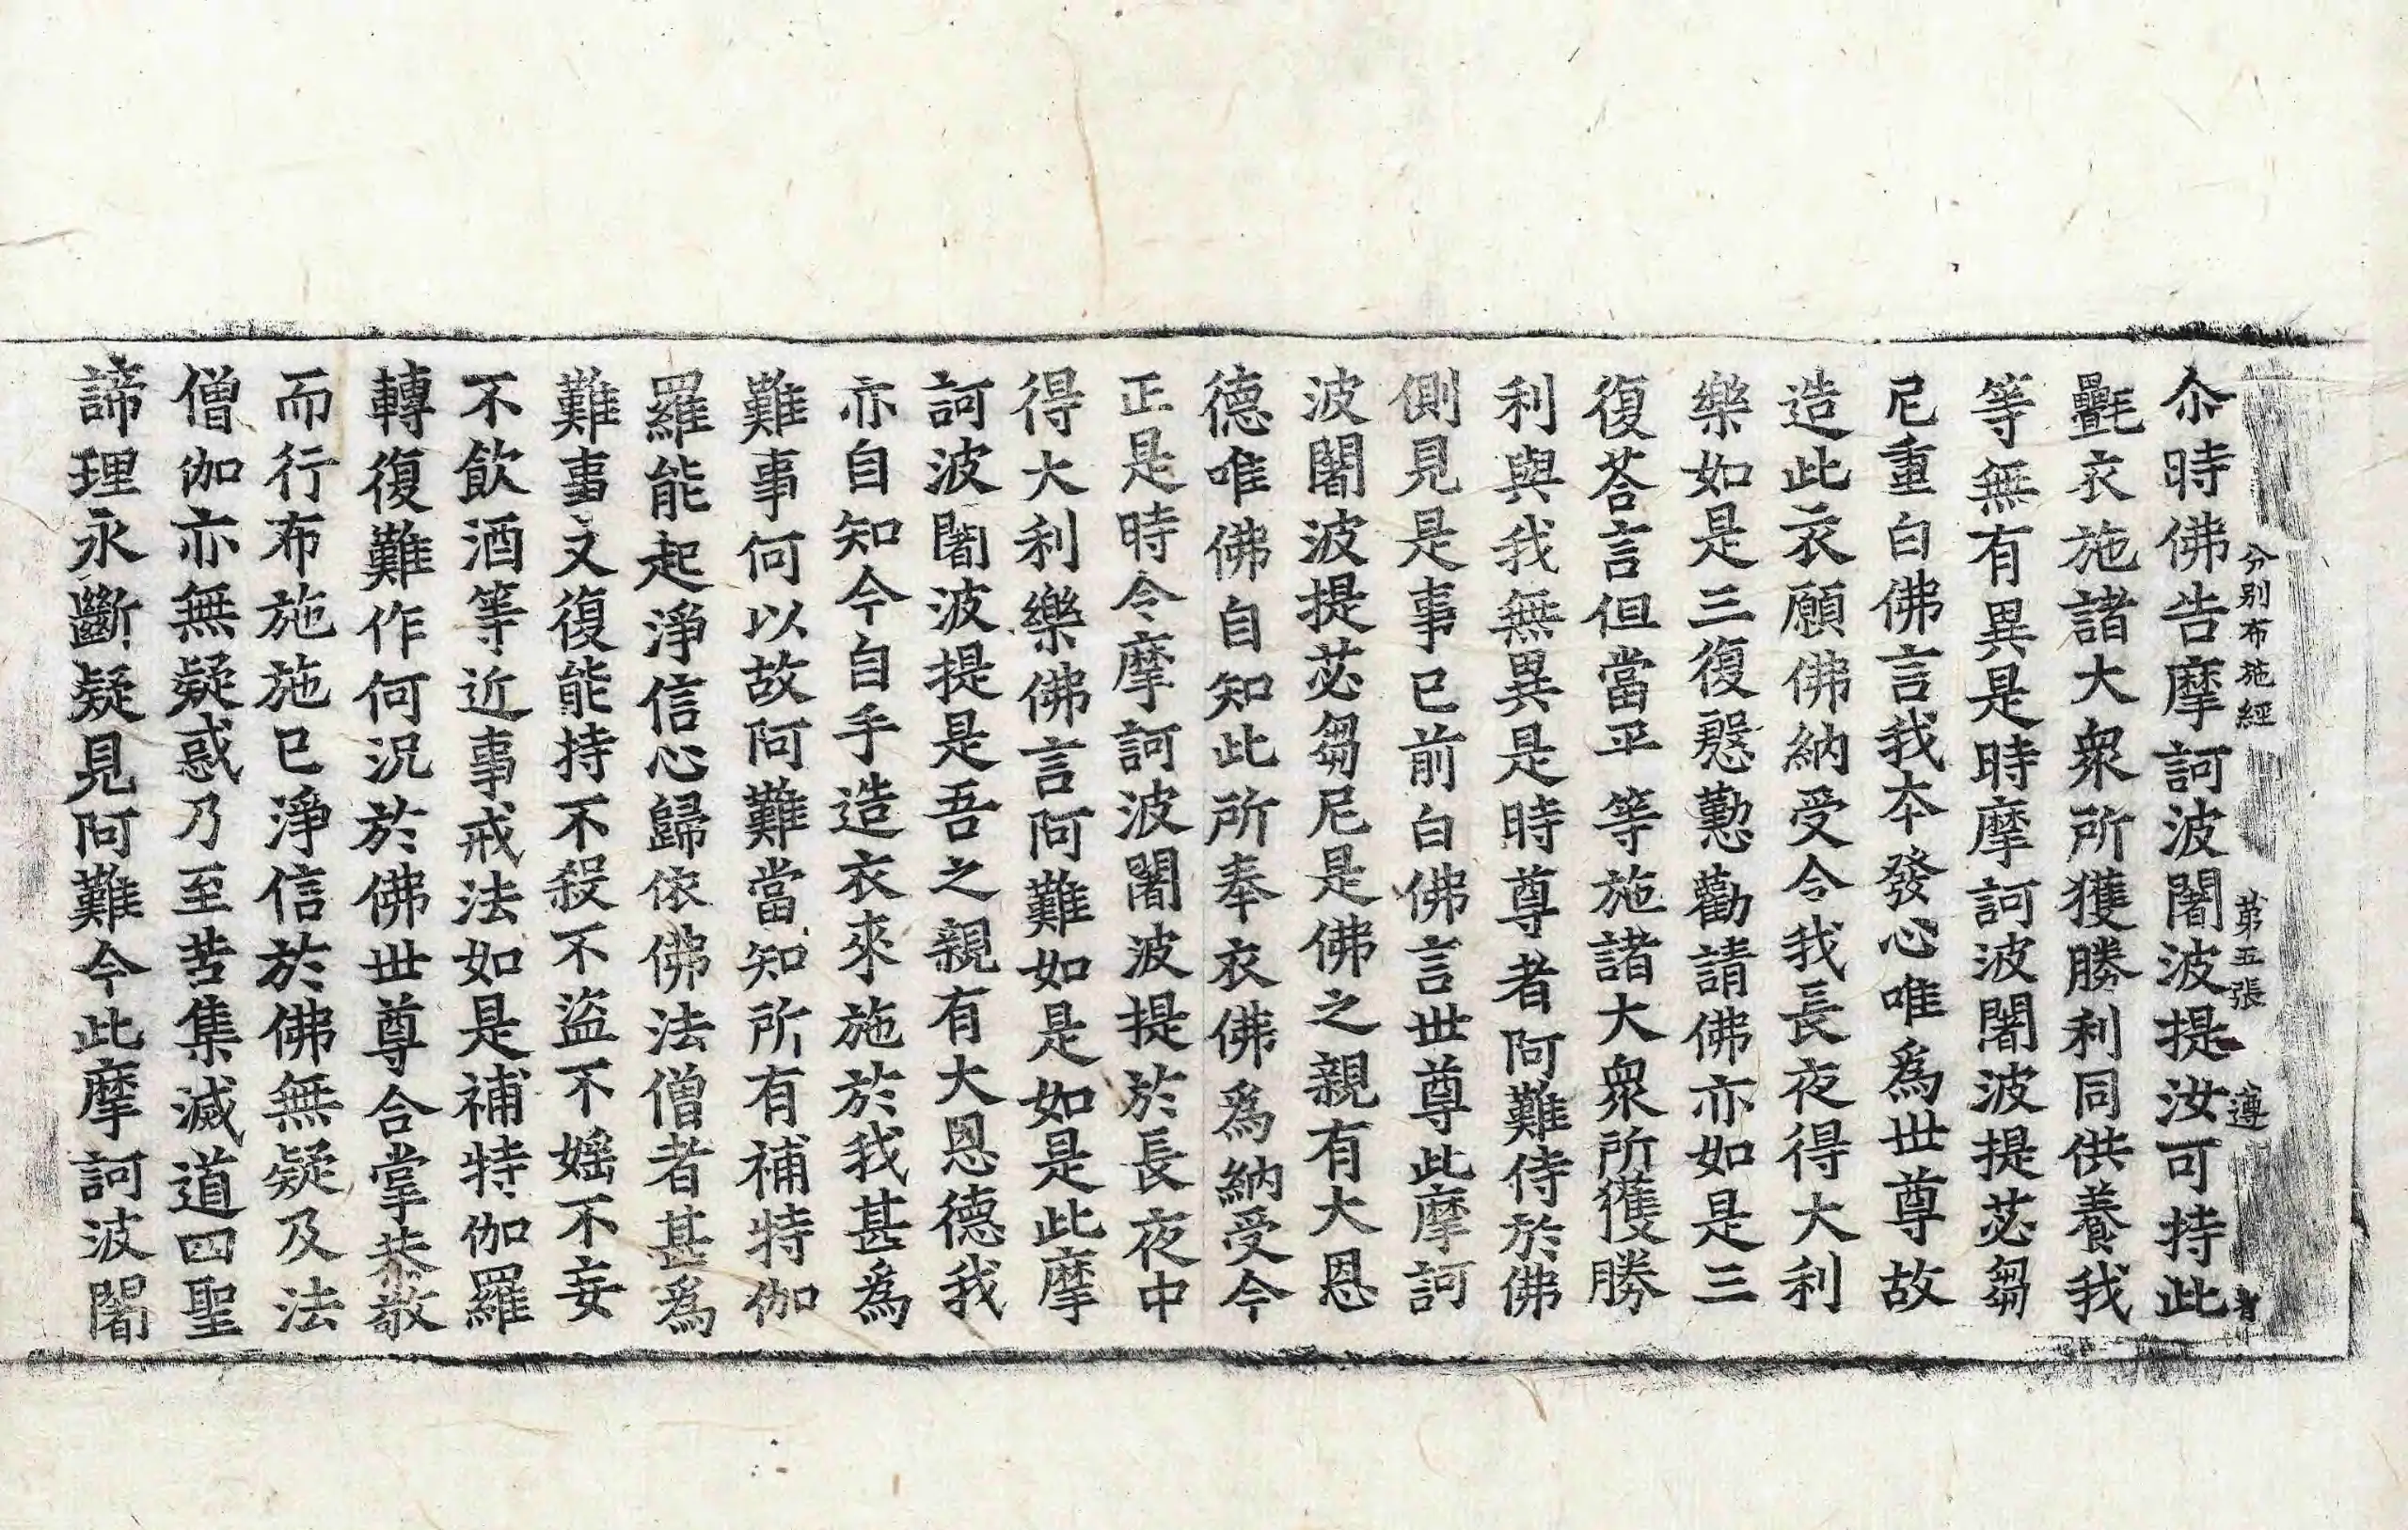 分別布施經 第五張 遵
尒時佛告摩訶波闍波提汝可持此
㲲衣施諸大衆所獲勝利同供養我
等無有異是時摩訶波闍波提苾芻
尼重白佛言我本發心唯爲世尊故
造此衣願佛納受令我長夜得大利
樂如是三復慇懃勸請佛亦如是三
復荅言但當平等施諸大衆所獲勝
利與我無異是時尊者阿難侍於佛
側見是事已前白佛言世尊此摩訶
波闍波提苾芻尼是佛之親有大恩
德唯佛自知此所奉衣佛爲納受今
正是時令摩訶波闍波提於長夜中
得大利樂佛言阿難如是如是此摩
訶波闍波提是吾之親有大恩德我
亦自知今自手造衣來施於我甚爲
難事何以故阿難當知所有補特伽
羅能起淨信心歸依佛法僧者甚爲
難事又復能持不殺不盜不婬不妄
不飲酒等近事戒法如是補特伽羅
轉復難作何況於佛世尊合掌恭敬
而行布施施已淨信於佛無疑及法
僧伽亦無疑惑乃至苦集滅道四聖
諦理永斷疑見阿難今此摩訶波闍